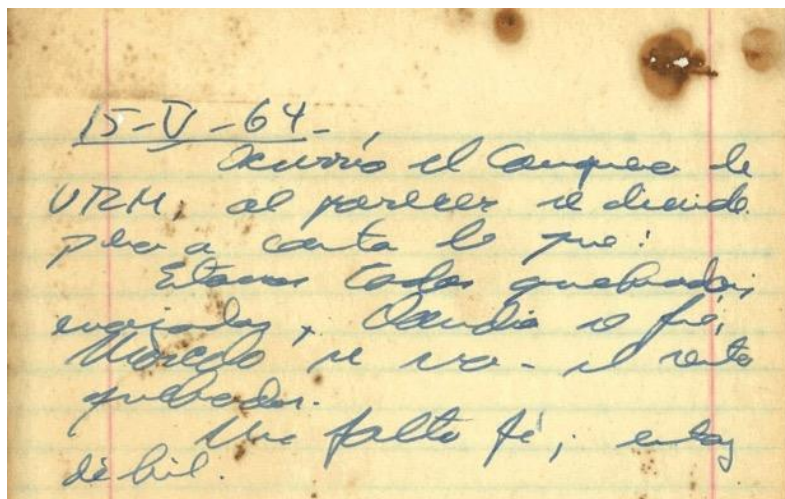 15-V-64-
Ocurrió el Congreso de
VRM, al parecer se divide
pero a costa de que!
Estamos todos quebrados,
enojados, Claudia se fué,
Marcelo se va - el resto
quebrados.
Me falta fé, estoy
débil.